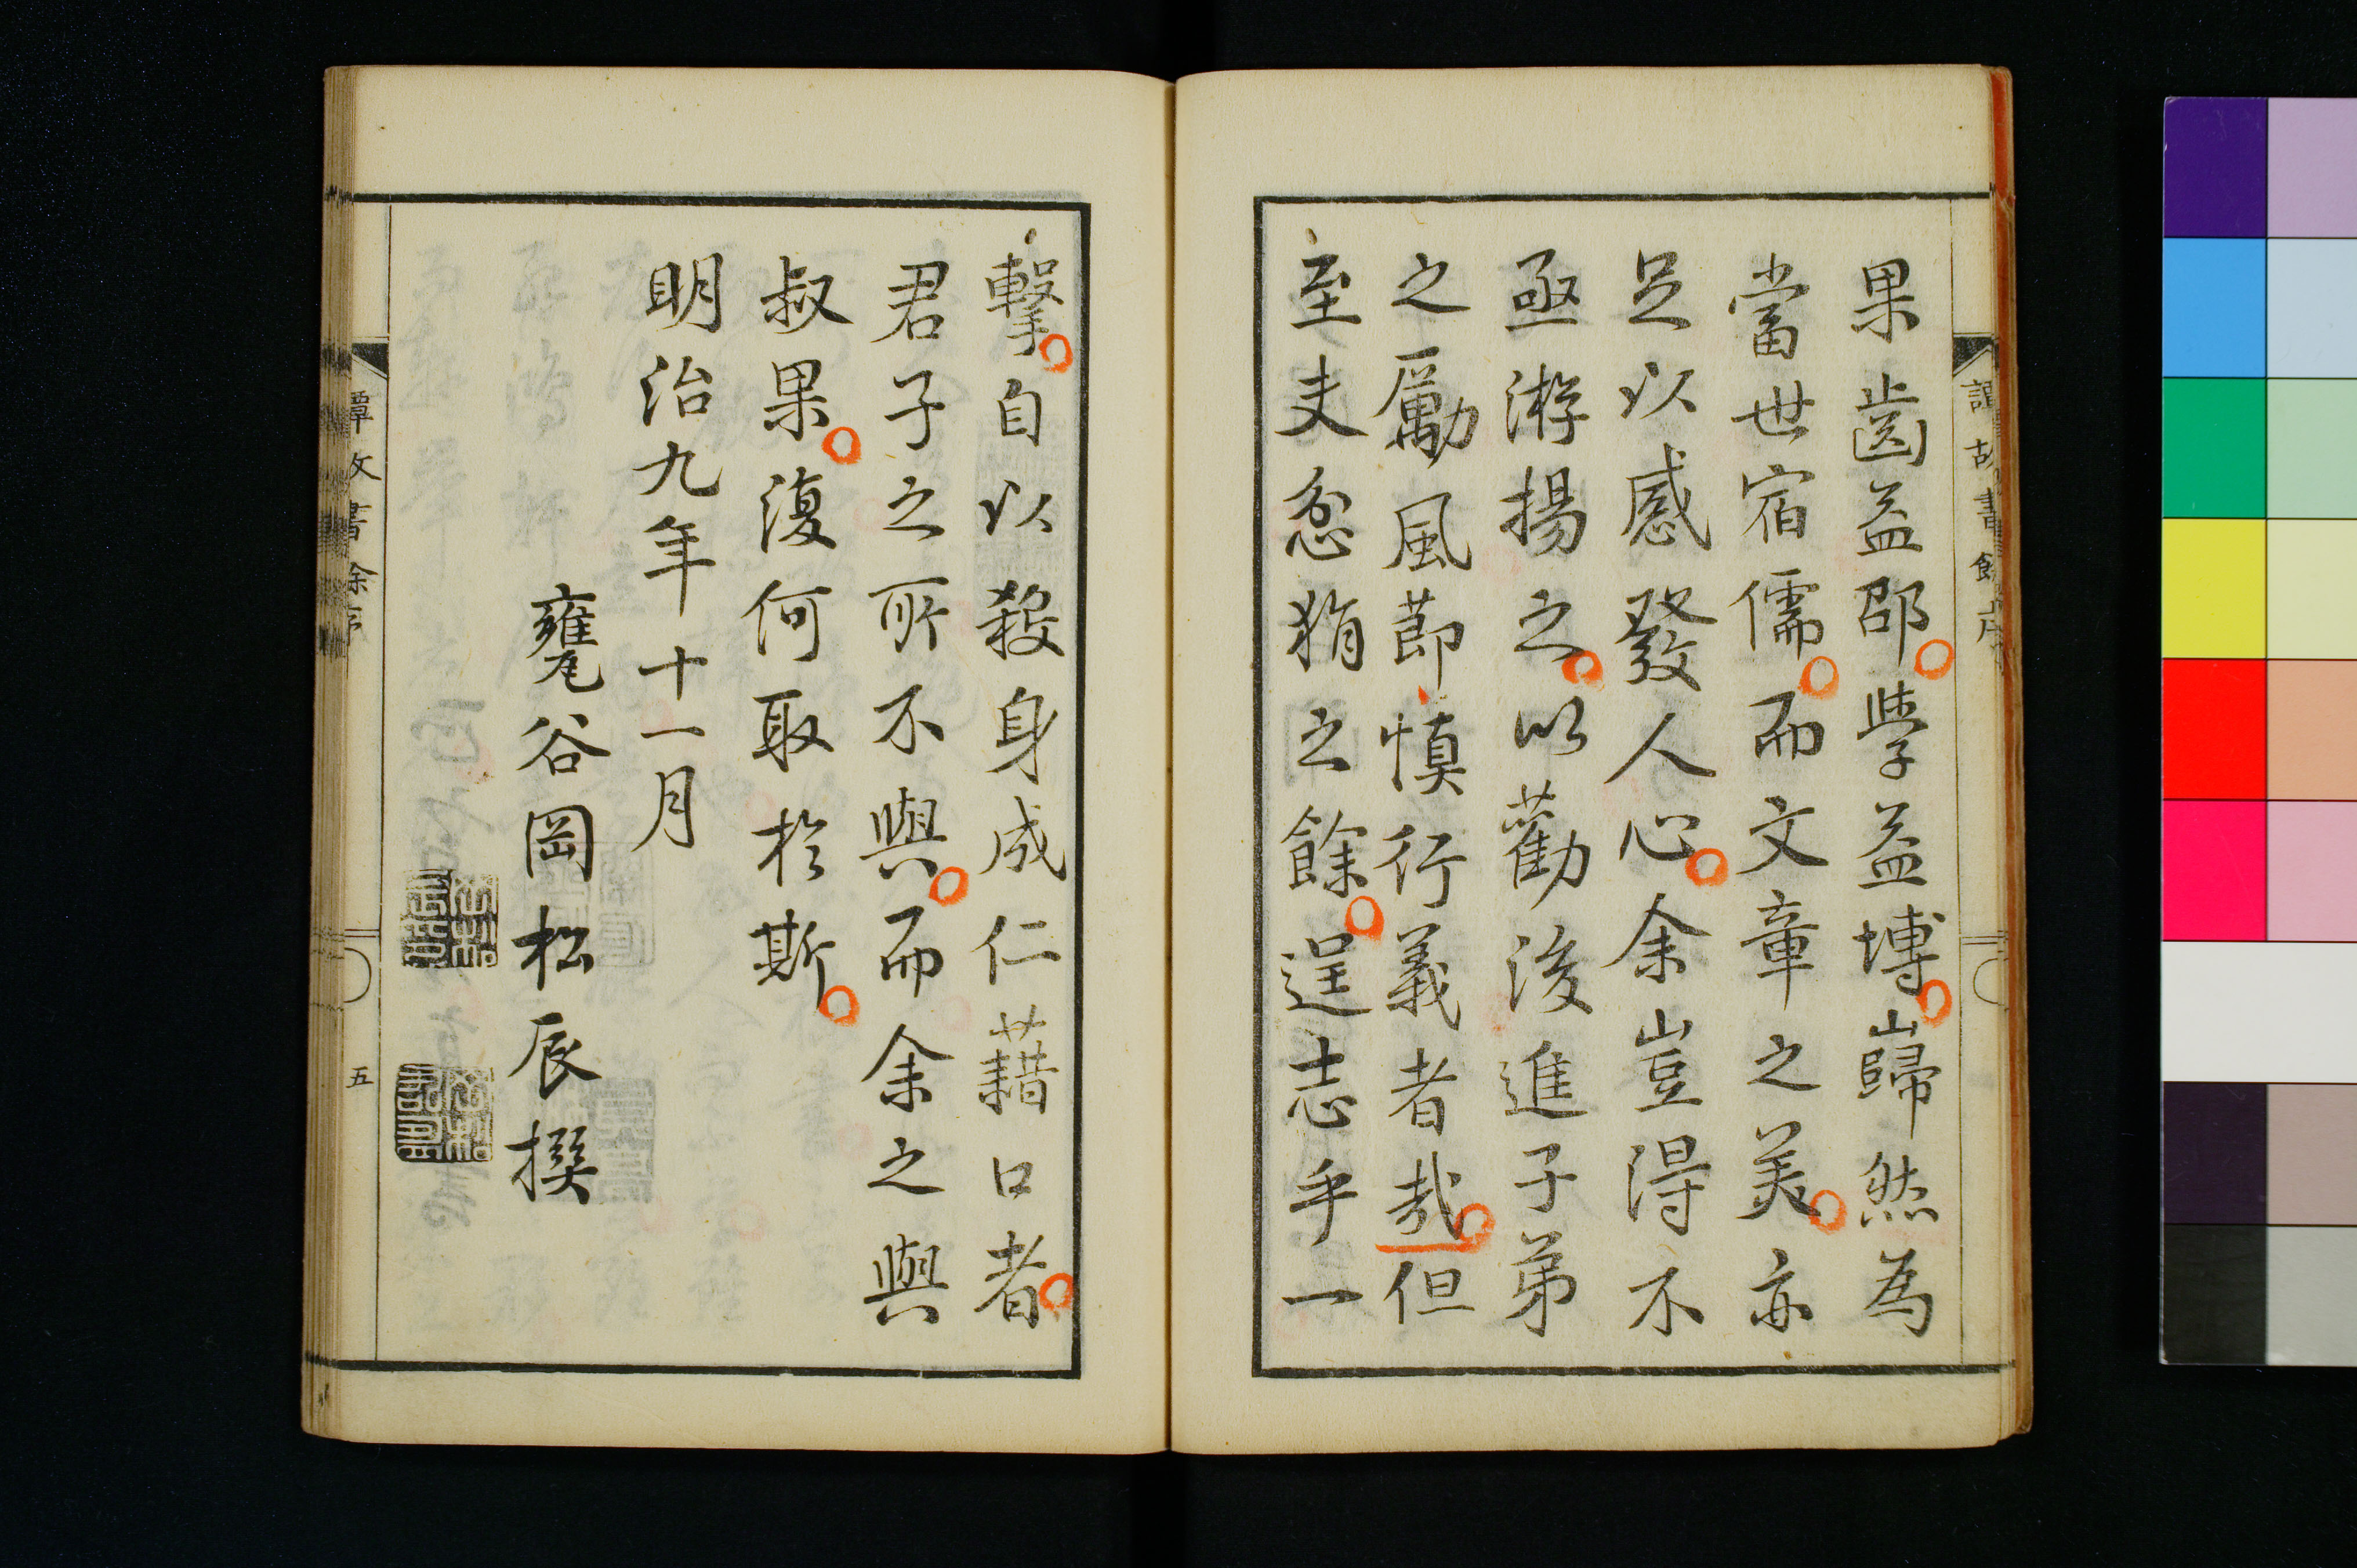 果齒益邵學益博巋然為
當世宿儒而文章之美亦
足以感發人心余豈得不
亟游揚之以勸後進子弟
之勵風節慎行義者哉但
至夫忿狷之餘逞志乎一
擊自以殺身成仁藉口者
君子之所不與而余之與
叔果復何取於斯
明治九年十一月
甕谷岡松辰撰
五